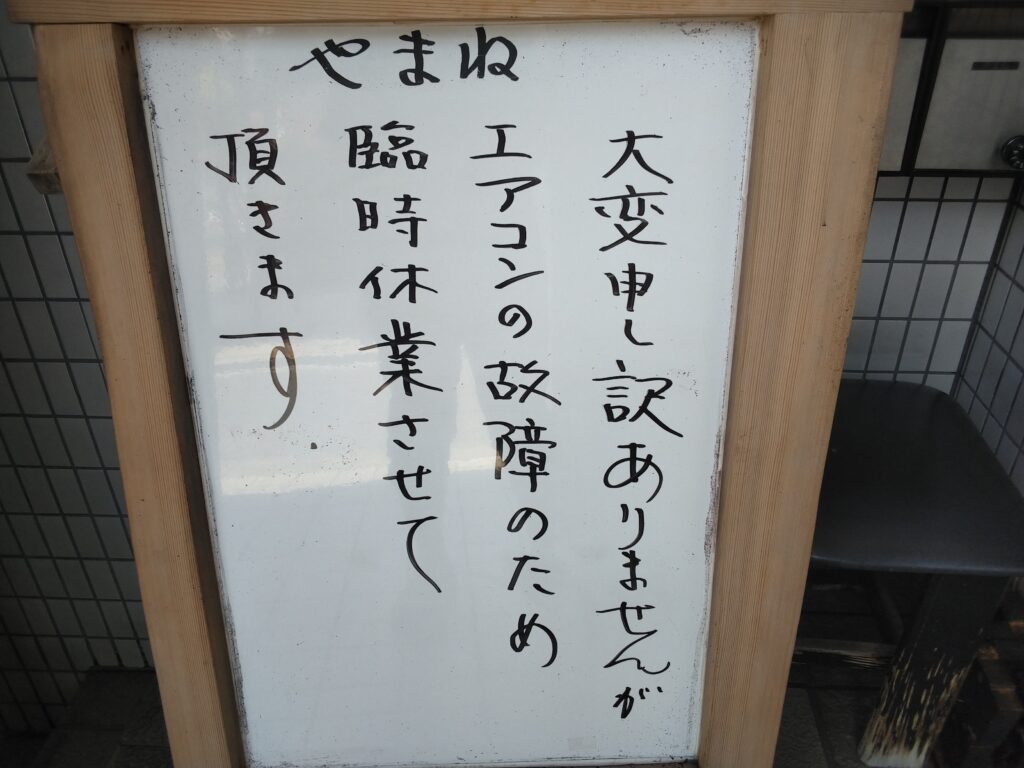 やまね
大変申し訳ありませんが
エアコンの故障のため
臨時休業させて
頂きます